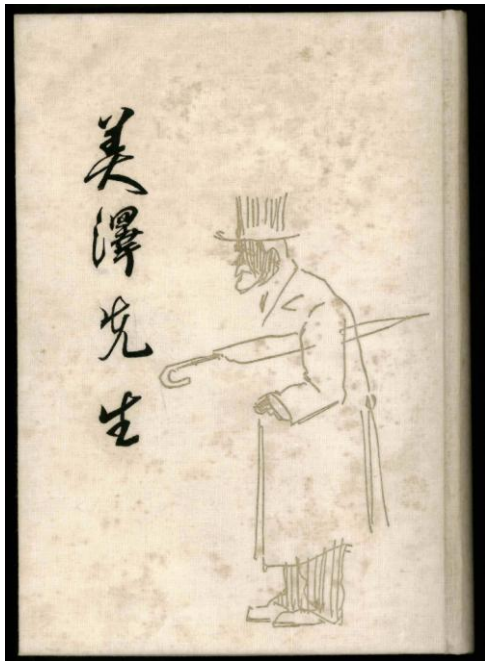 美澤先生